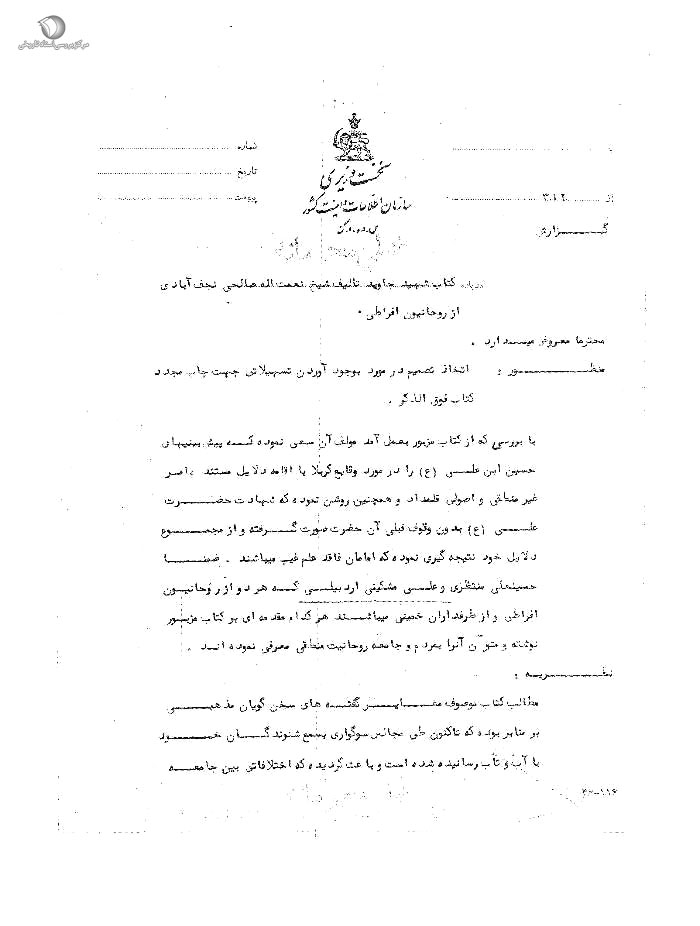 مرکز بررسی اسناد تاریخی
شماره
تاریخ
پیوست
نخست وزیری
سازمان اطلاعات و امنیت کشور
از ۳۰۲
گزارش
درباره کتاب شهید جاوید تالیف شیخ نعمت اله صالحی نجف آبادی
از روحانیون افراطی .
محترما معروض میدارد .
منظور : اتخاذ تصمیم در مورد بوجود آوردن تسهیلاتی جهت چاپ مجدد
کتاب فوق الذکر .
با بررسی که از کتاب مزبور بعمل آمد مولف آن سعی نموده که پیش بینیهای
حسین ابن علی (ع) را در مورد وقایع کربلا با اقامه دلایل مستند
غیر منطقی و اصولی قلمداد و همچنین روشن نموده که شهادت حضرت
علی (ع) بدون وقوف قبلی آن حضرت صورت گرفته و از مجموع
دلایل خود نتیجه گیری نموده که امامان فاقد علم غیب میباشند . ضمنا
حسینعلی منتظری و علی مشکینی اردبیلی که هر دو از روحانیون
افراطی و از طرفداران خمینی میباشند هر کدام مقدمه ای بر کتاب مزبور
نوشته و متن آنرا بمردم و جامعه روحانیت منطقی معرفی نموده اند .
نظریه :
مطالب کتاب موصوف مغایر گفته های سخن گویان مذهبی
بر منابر بوده که تاکنون طی مجالس سوگواری بسمع شنوندگان خود
با آب و تاب رسانیده شده است و باعث گردیده که اختلافاتی بین جامعه
۳۶-۱۱۶